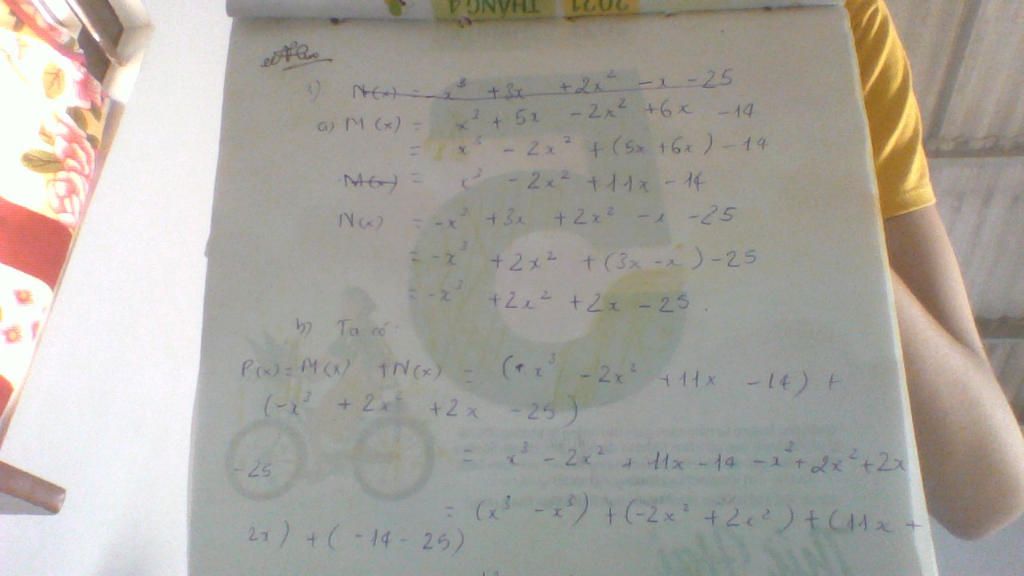 2021 THÁNG 4
1) N(x) = -x³ +3x +2x² -x -25
a) M(x) = x³ + 5x -2x² +6x -14
= x³ - 2x² + (5x +6x) -14
M(x) = x³ -2x² +11x -14
N(x) = -x³ +3x +2x² -x -25
= -x³ +2x² +(3x -x) -25
= -x³ +2x² +2x -25.
b) Ta có:
P(x) = M(x) +N(x) = (x³ -2x² +11x -14) +
(-x³ +2x² +2x -25)
= x³ -2x² +11x -14 -x³ +2x² +2x
-25
= (x³ -x³) +(-2x² +2x²) +(11x +
2x) +(-14 -25)